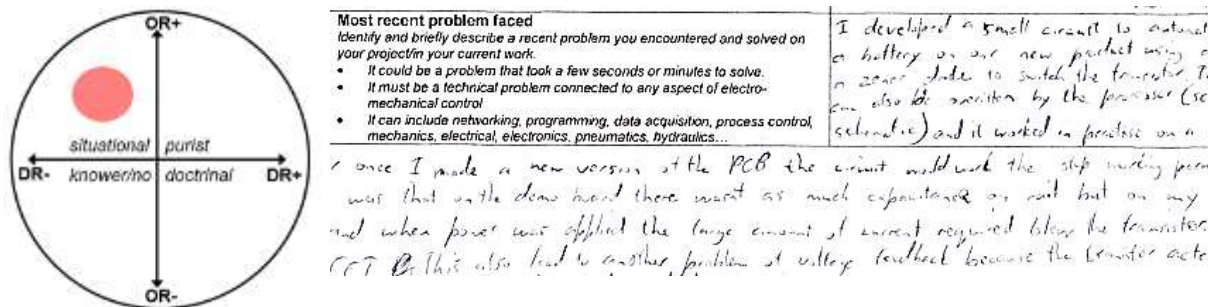 OR+
situational purist
DR- DR+
knower/no doctrinal
OR-
Most recent problem faced
Identify and briefly describe a recent problem you encountered and solved on
your project/in your current work.
• It could be a problem that took a few seconds or minutes to solve.
• It must be a technical problem connected to any aspect of electro-
mechanical control
• It can include networking, programming, data acquisition, process control,
mechanics, electrical, electronics, pneumatics, hydraulics...
I developed a small circuit to
a battery on our new product using
a zener to switch the transistor
can also be by the processor
schematic) and it worked in practise on a
once I made a new version of the PCB the circuit would work the stop working
was that on the demo board there wasnt as much capacitance on but on my
and when power was applied the large amount of current required blows the transistor
This also lead to another problem of voltage feedback because the transistor